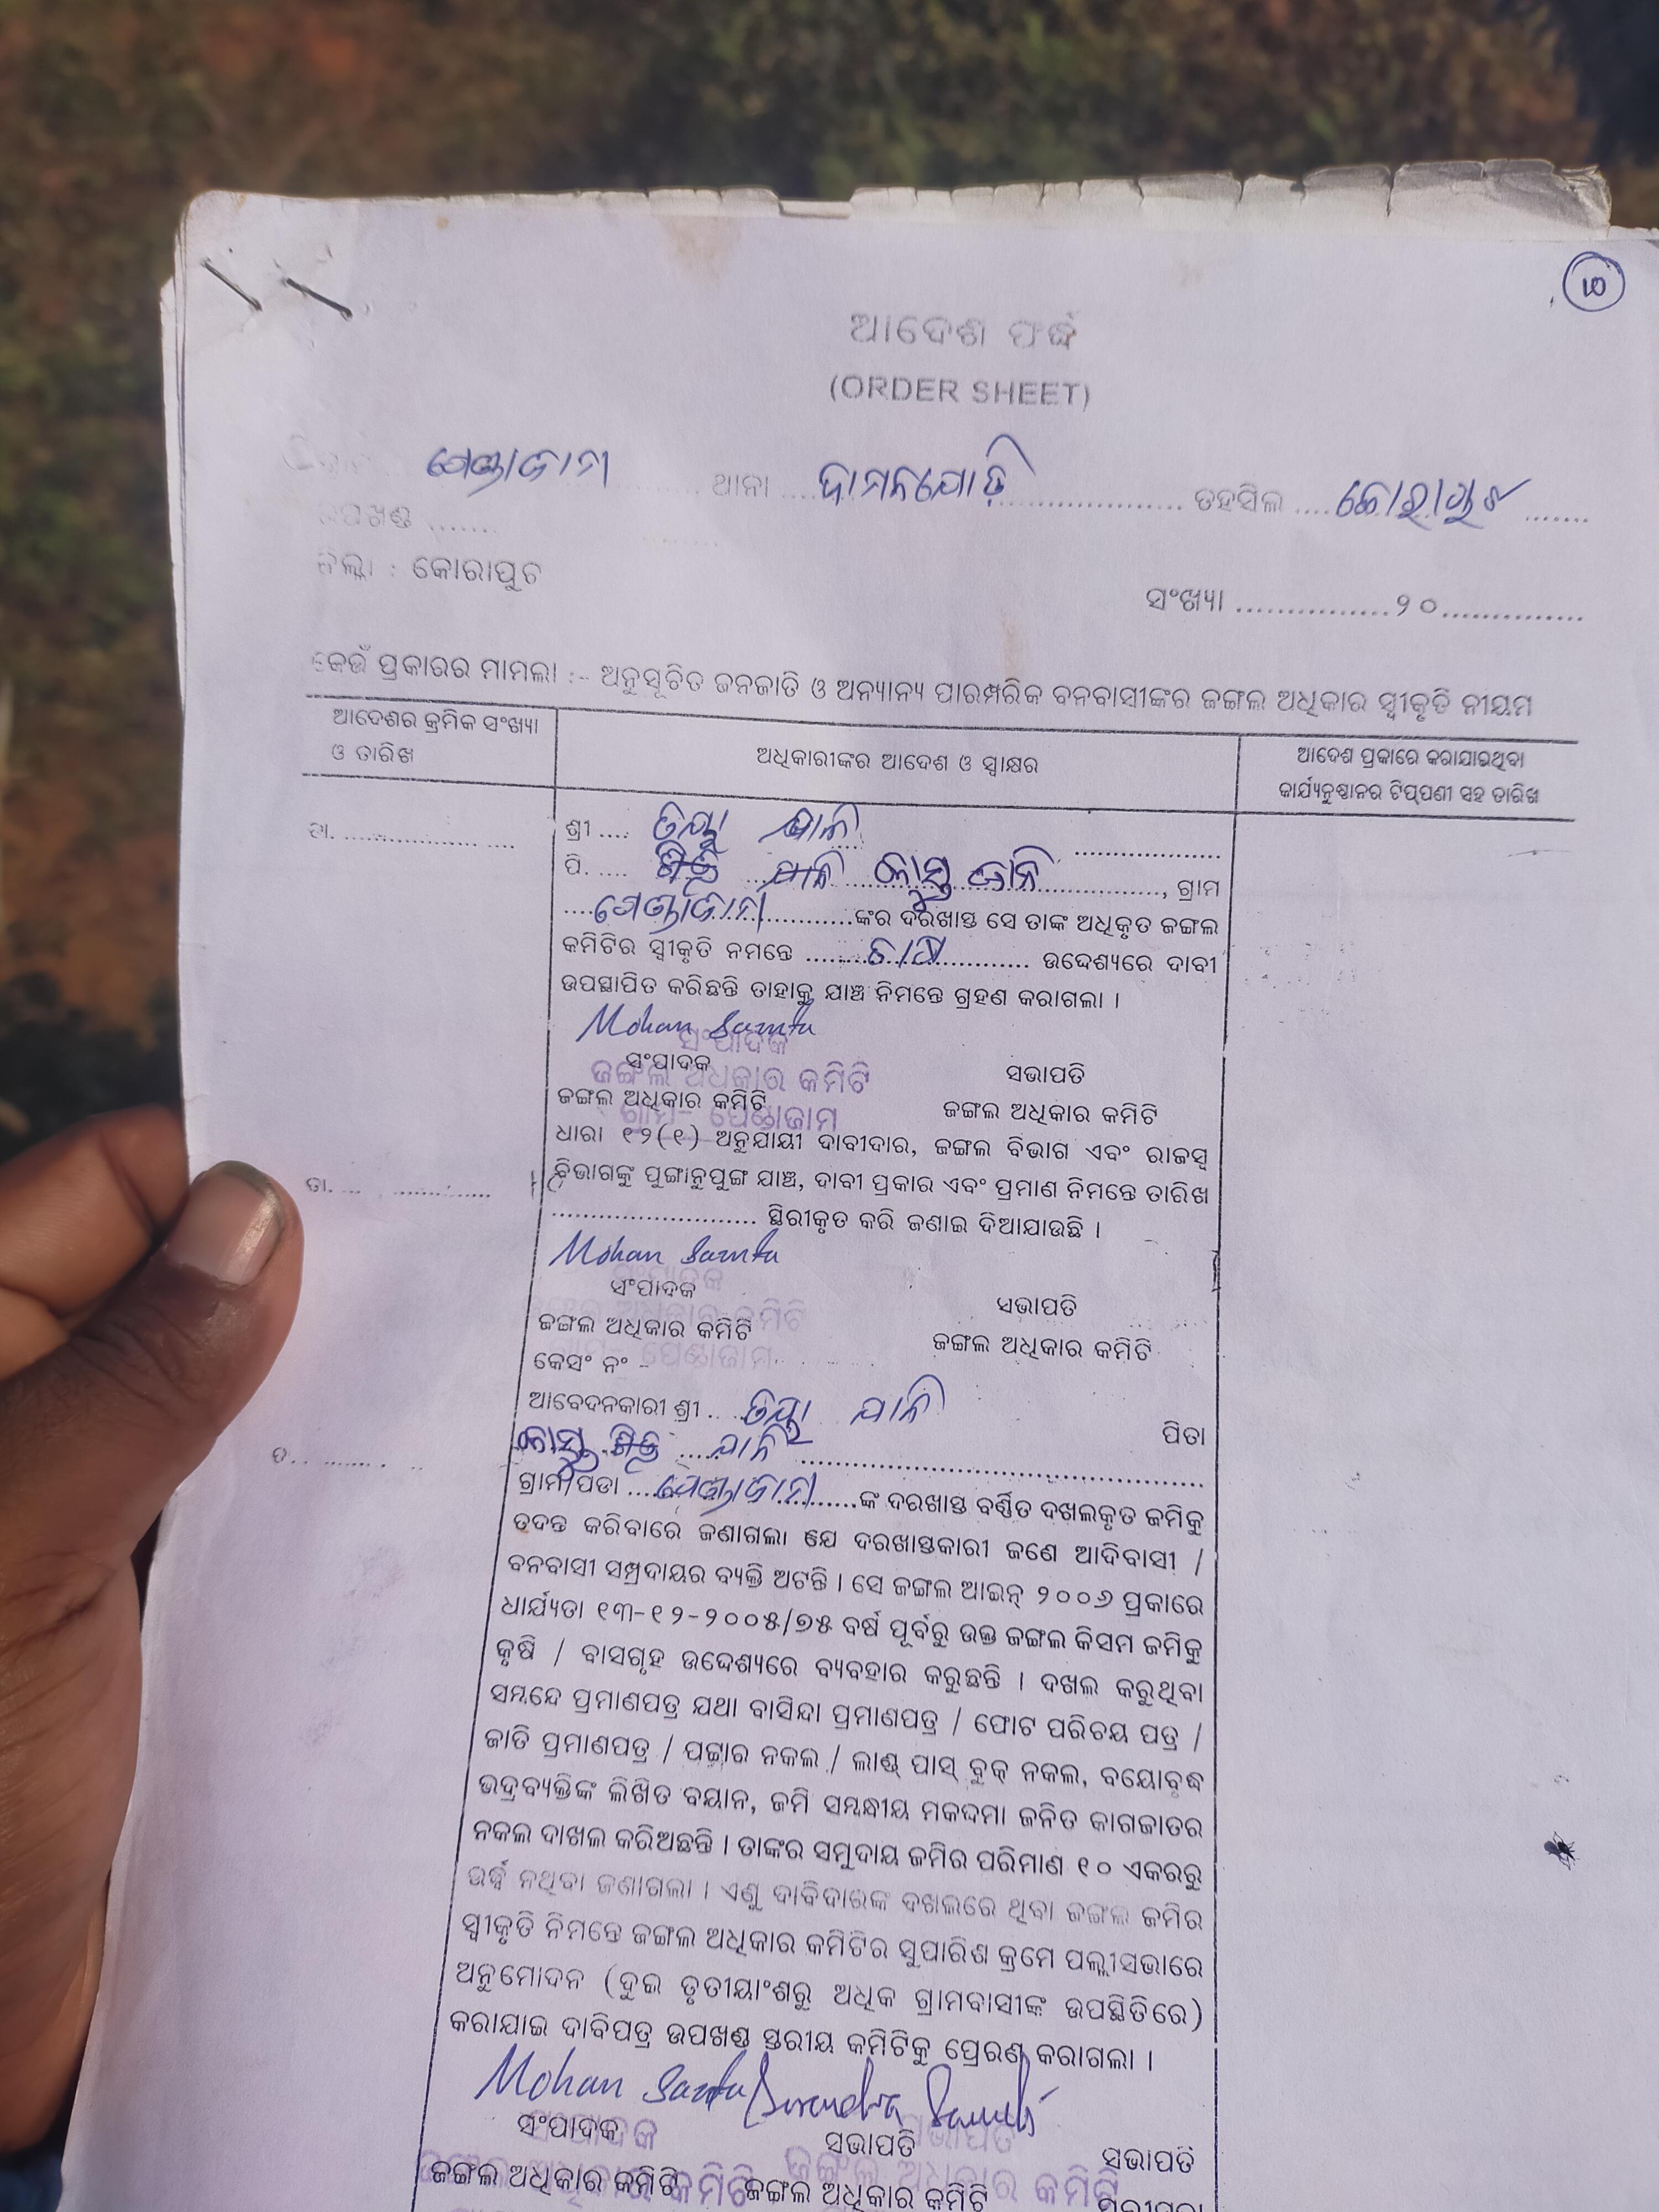 ୰୦
ଆଦେଶ ଫର୍ଦ୍ଦ
(ORDER SHEET)
ପେଣ୍ଡାଜାମ ଥାନା .... ଦାମନଯୋଡ଼ି .................... ତହସିଲ .... କୋରାପୁଟ .......
ଉପଖଣ୍ଡ .......
ଜିଲ୍ଲା : କୋରାପୁଟ
ସଂଖ୍ୟା ...............୨୦..............
କେଉଁ ପ୍ରକାରର ମାମଲା :- ଅନୁସୂଚିତ ଜନଜାତି ଓ ଅନ୍ୟାନ୍ୟ ପାରମ୍ପରିକ ବନବାସୀଙ୍କର ଜଙ୍ଗଲ ଅଧିକାର ସ୍ୱୀକୃତି ନୀୟମ
ଆଦେଶର କ୍ରମିକ ସଂଖ୍ୟା
ଓ ତାରିଖ
ଅଧିକାରୀଙ୍କର ଆଦେଶ ଓ ସ୍ୱାକ୍ଷର
ଆଦେଶ ପ୍ରକାରେ କରାଯାଇଥିବା
କାର୍ଯ୍ୟନୁଷ୍ଠାନର ଟିପ୍ପଣୀ ସହ ତାରିଖ
ତା. .......................
ଶ୍ରୀ .... ଯାନି ....................
ପି. ..... ଯାନି ...................., ଗ୍ରାମ
....ପେଣ୍ଡାଜାମ............ଙ୍କର ଦରଖାସ୍ତ ସେ ତାଙ୍କ ଅଧିକୃତ ଜଙ୍ଗଲ
କମିଟିର ସ୍ୱୀକୃତି ନମନ୍ତେ .........ଚାଷ............ ଉଦ୍ଦେଶ୍ୟରେ ଦାବୀ
ଉପସ୍ଥାପିତ କରିଛନ୍ତି ତାହାକୁ ଯାଞ୍ଚ ନିମନ୍ତେ ଗ୍ରହଣ କରାଗଲା ।
Mohan Samta
ସଂପାଦକ
ସଂପାଦକ ସଭାପତି
ଜଙ୍ଗଲ ଅଧିକାର କମିଟି
ଜଙ୍ଗଲ ଅଧିକାର କମିଟି ଜଙ୍ଗଲ ଅଧିକାର କମିଟି
ଗ୍ରାମ- ପେଣ୍ଡାଜାମ
ଧାରା ୧୨(୧) ଅନୁଯାୟୀ ଦାବୀଦାର, ଜଙ୍ଗଲ ବିଭାଗ ଏବଂ ରାଜସ୍ୱ
ତା. ... ..............
ବିଭାଗଙ୍କୁ ପୁଙ୍ଗାନୁପୁଙ୍ଗ ଯାଞ୍ଚ, ଦାବୀ ପ୍ରକାର ଏବଂ ପ୍ରମାଣ ନିମନ୍ତେ ତାରିଖ
.......................... ସ୍ଥିରୀକୃତ କରି ଜଣାଇ ଦିଆଯାଉଛି ।
Mohan Samta
ସଂପାଦକ
ସଂପାଦକ ସଭାପତି
ଜଙ୍ଗଲ ଅଧିକାର କମିଟି
ଜଙ୍ଗଲ ଅଧିକାର କମିଟି ଜଙ୍ଗଲ ଅଧିକାର କମିଟି
ପେଣ୍ଡାଜାମ
କେସଂ ନଂ -
ଆବେଦନକାରୀ ଶ୍ରୀ .... ଯାନି ପିତା
..... ଯାନି ........................................
ଗ୍ରାମ/ପଡା ......ପେଣ୍ଡାଜାମ..........ଙ୍କ ଦରଖାସ୍ତ ବର୍ଣ୍ଣିତ ଦଖଲକୃତ ଜମିକୁ
ତଦନ୍ତ କରିବାରେ ଜଣାଗଲା ଯେ ଦରଖାସ୍ତକାରୀ ଜଣେ ଆଦିବାସୀ /
ବନବାସୀ ସମ୍ପ୍ରଦାୟର ବ୍ୟକ୍ତି ଅଟନ୍ତି । ସେ ଜଙ୍ଗଲ ଆଇନ୍ ୨୦୦୬ ପ୍ରକାରେ
ଧାର୍ଯ୍ୟତା ୧୩-୧୨-୨୦୦୫/୭୫ ବର୍ଷ ପୂର୍ବରୁ ଉକ୍ତ ଜଙ୍ଗଲ କିସମ ଜମିକୁ
କୃଷି / ବାସଗୃହ ଉଦ୍ଦେଶ୍ୟରେ ବ୍ୟବହାର କରୁଛନ୍ତି । ଦଖଲ କରୁଥିବା
ସମ୍ଵନ୍ଦେ ପ୍ରମାଣପତ୍ର ଯଥା ବାସିନ୍ଦା ପ୍ରମାଣପତ୍ର / ଫୋଟ ପରିଚୟ ପତ୍ର /
ଜାତି ପ୍ରମାଣପତ୍ର / ପଟ୍ଟାର ନକଲ / ଲାଣ୍ଡ୍ ପାସ୍ ବୁକ୍ ନକଲ, ବୟୋବୃଦ୍ଧ
ଭଦ୍ରବ୍ୟକ୍ତିଙ୍କ ଲିଖିତ ବୟାନ, ଜମି ସମ୍ଵନ୍ଧୀୟ ମକଦ୍ଦମା ଜନିତ କାଗଜାତର
ନକଲ ଦାଖଲ କରିଅଛନ୍ତି । ତାଙ୍କର ସମୁଦାୟ ଜମିର ପରିମାଣ ୧୦ ଏକରରୁ
ଉର୍ଦ୍ଧ୍ୱ ନଥିବା ଜଣାଗଲା । ଏଣୁ ଦାବିଦାରଙ୍କ ଦଖଲରେ ଥିବା ଜଙ୍ଗଲ ଜମିର
ସ୍ୱୀକୃତି ନିମନ୍ତେ ଜଙ୍ଗଲ ଅଧିକାର କମିଟିର ସୁପାରିଶ କ୍ରମେ ପଲ୍ଲୀସଭାରେ
ଅନୁମୋଦନ (ଦୁଇ ତୃତୀୟାଂଶରୁ ଅଧିକ ଗ୍ରାମବାସୀଙ୍କ ଉପସ୍ଥିତିରେ)
କରାଯାଇ ଦାବିପତ୍ର ଉପଖଣ୍ଡ ସ୍ତରୀୟ କମିଟିକୁ ପ୍ରେରଣ କରାଗଲା ।
Mohan Samta
ସଂପାଦକ ସଭାପତି ସଭାପତି
ଜଙ୍ଗଲ ଅଧିକାର କମିଟି ଜଙ୍ଗଲ ଅଧିକାର କମିଟି